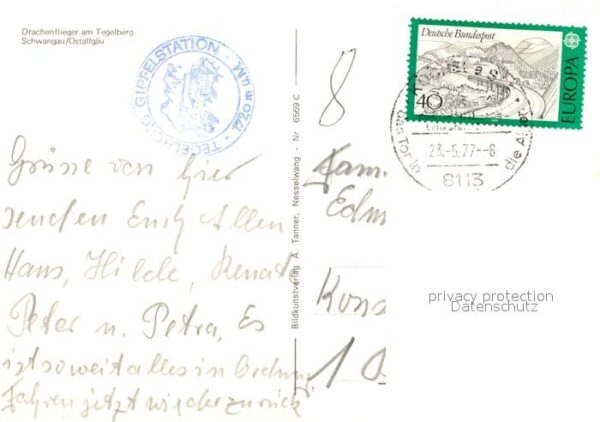 Drachenflieger am Tegelberg
Schwangau/Ostallgäu
TEGELBERG GIPFELSTATION · 1720 m ü.M.
Grüsse von hier
senden Euch Allen
Hans, Hilde, Renate
Peter u. Petra, Es
ist soweit alles in Ordnung
Fahren jetzt wieder zurück
Bildkunstverlag A. Tanner, Nesselwang - Nr 6569 C
8
Deutsche Bundespost
40
EUROPA
das Tor in die Alpen
23.-5.77.-8
8113
Fam.
Edm
Kons
1
privacy protection
Datenschutz